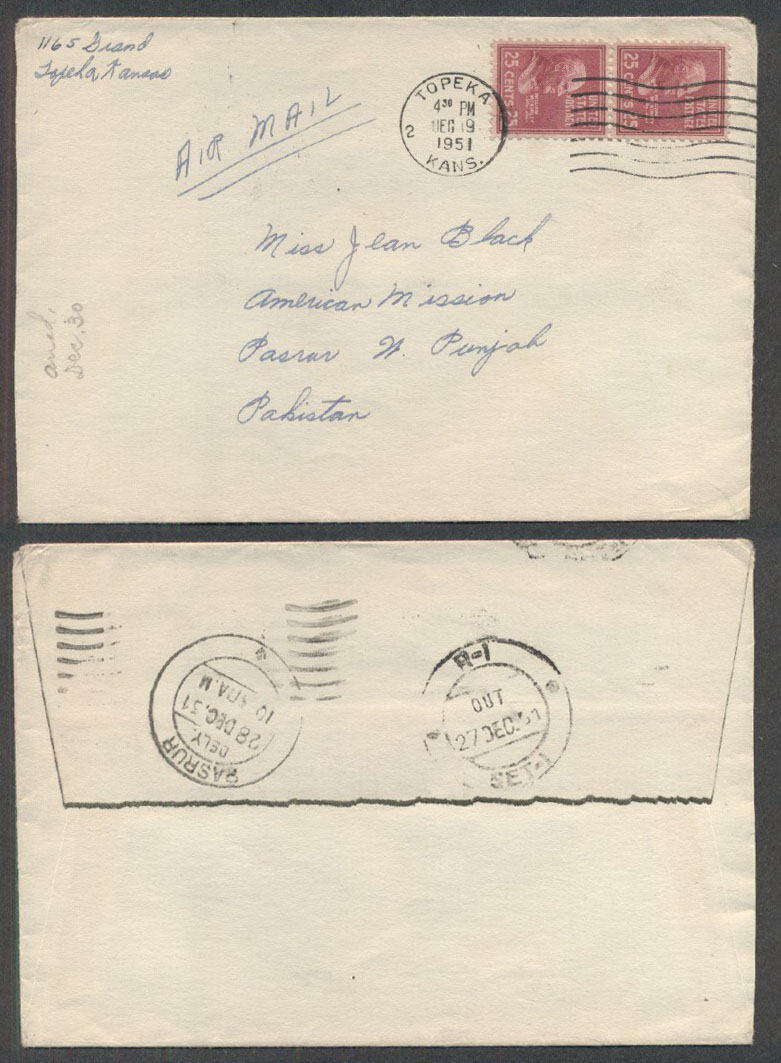 1165 Grand
Topeka, Kansas
AIR MAIL
TOPEKA
4 30 PM
DEC 19
1951
2
KANS.
25 CENTS 25
25 CENTS 25
Miss Jean Black
American Mission
Pasrur W. Punjab
Pakistan
Dec. 30
R-1
OUT
27 DEC. 51
SET-1
PASRUR
DELY.
28 DEC. 51
10 A.M